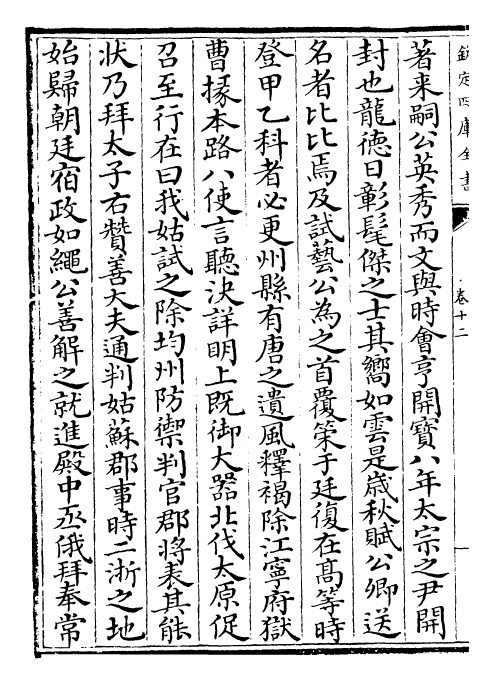 欽定四庫全書
卷十二
著來嗣公英秀而文與時會亨開寶八年太宗之尹開
封也龍德日彰髦傑之士其嚮如雲是歲秋賦公卿送
名者比比焉及試藝公為之首覆策于廷復在高等時
登甲乙科者必更州縣有唐之遺風釋褐除江寧府獄
曹掾本路八使言聽決詳明上既御大器北伐太原促
召至行在曰我姑試之除均州防禦判官郡將表其能
狀乃拜太子右贊善大夫通判姑蘇郡事時二浙之地
始歸朝廷宿政如繩公善解之就進殿中丞俄拜奉常